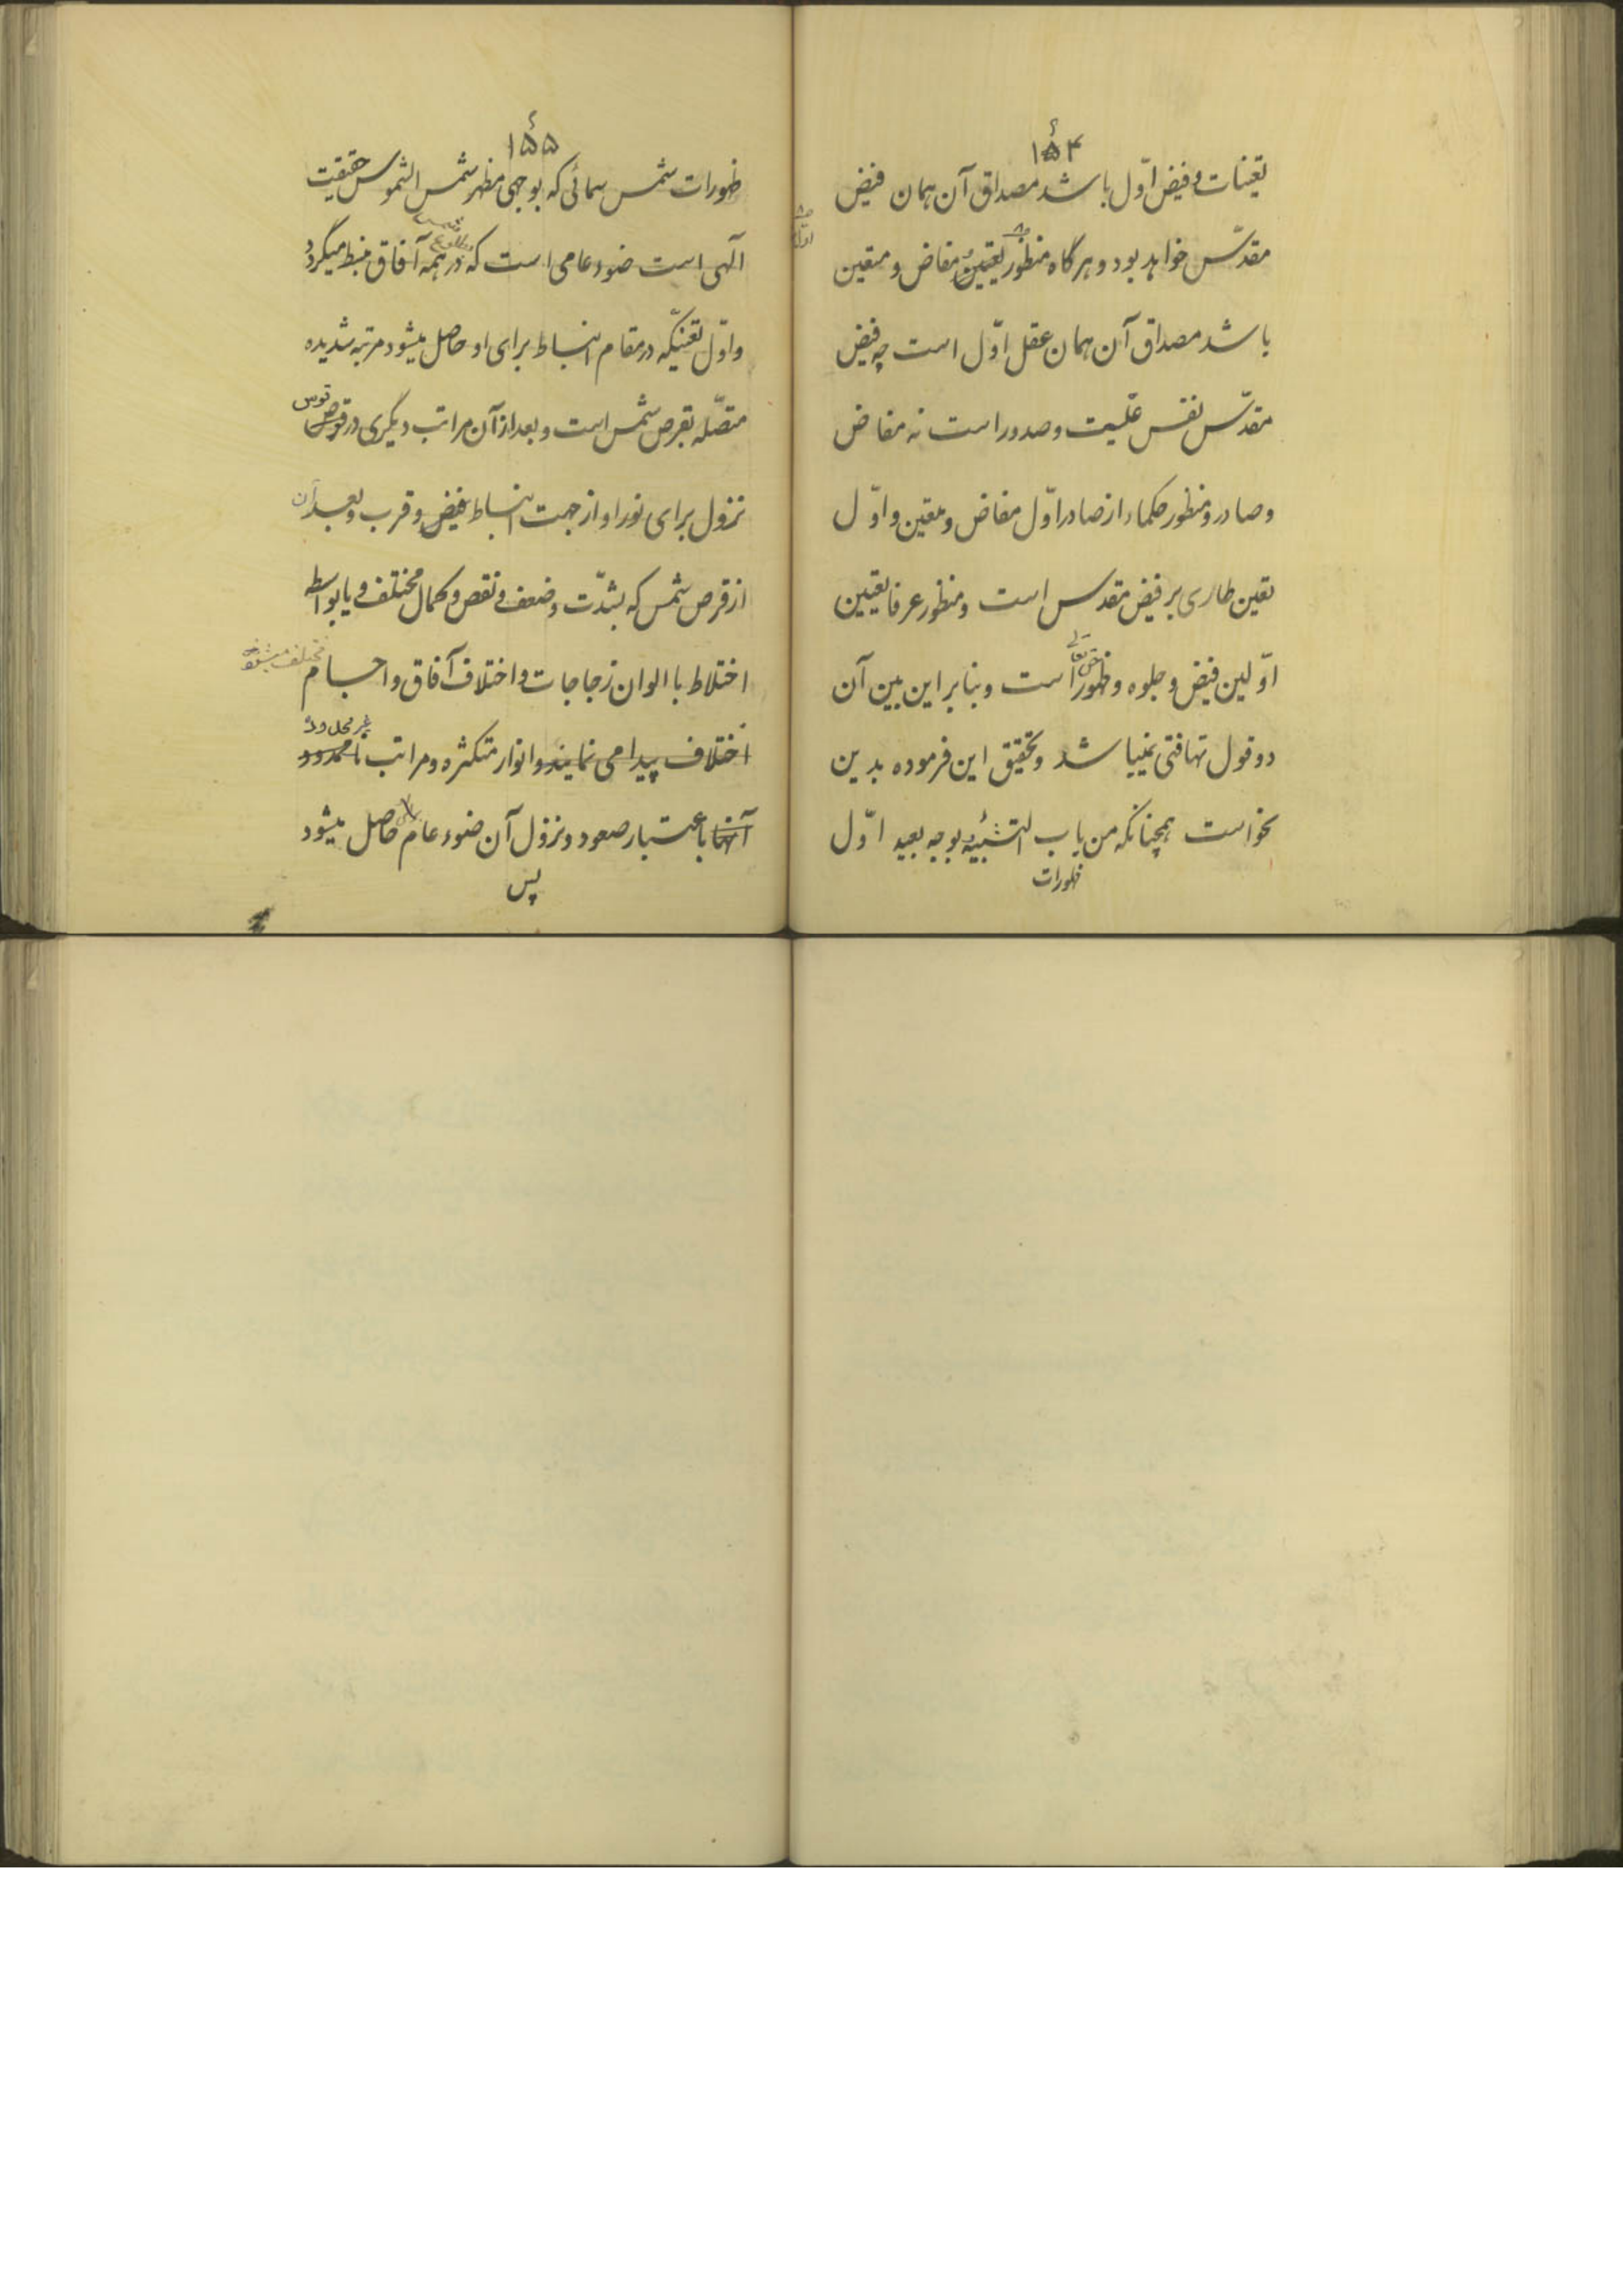 ۱۵۴
تعینات و فیض اوّل باشد مصداق آن همان فیض
مقدّس خواهد بود و هرگاه منظور تعین مفاض و متعین
باشد مصداق آن همان عقل اوّل است چه فیض
مقدّس نفس علّیت و صدور است نه مفاض
و صادر و منظور حکماء از صادر اوّل مفاض و متعین و اوّل
تعین طاری بر فیض مقدس است و منظور عرفا تعیین
اوّلین فیض و جلوه و ظهور حق تعالی است و بنابر این بین آن
دو قول تهافتی نمیباشد و تحقیق این فرموده بدین
نحو است همچنانکه من باب التشبیه بوجه بعید اوّل
ظهورات
۱۵۵
ظهورات شمس سمائی که بوجهی مظهر شمس الشموس حقیقت
آلهی است ضوء عامی است که در همه آفاق منبسط میگردد
و اوّل تعنیّکه در مقام انبساط برای او حاصل میشود مرتبه شدیده
متصّله بقرص شمس است و بعد از آن مراتب دیگری در قوس
نزول برای نور او از جهت انبساط فیض و قرب و بعد آن
از قرص شمس که بشدّت و ضعف و نقص و کمال مختلف و یا بواسطه
اختلاط با الوان زجاجات و اختلاف آفاق و اجسام مختلف میشود
اختلاف پیدا می نمایند و انوار متکثره و مراتب نامحدود غیر محدود
آنها باعتبار صعود و نزول آن ضوء عام حاصل میشود
پس